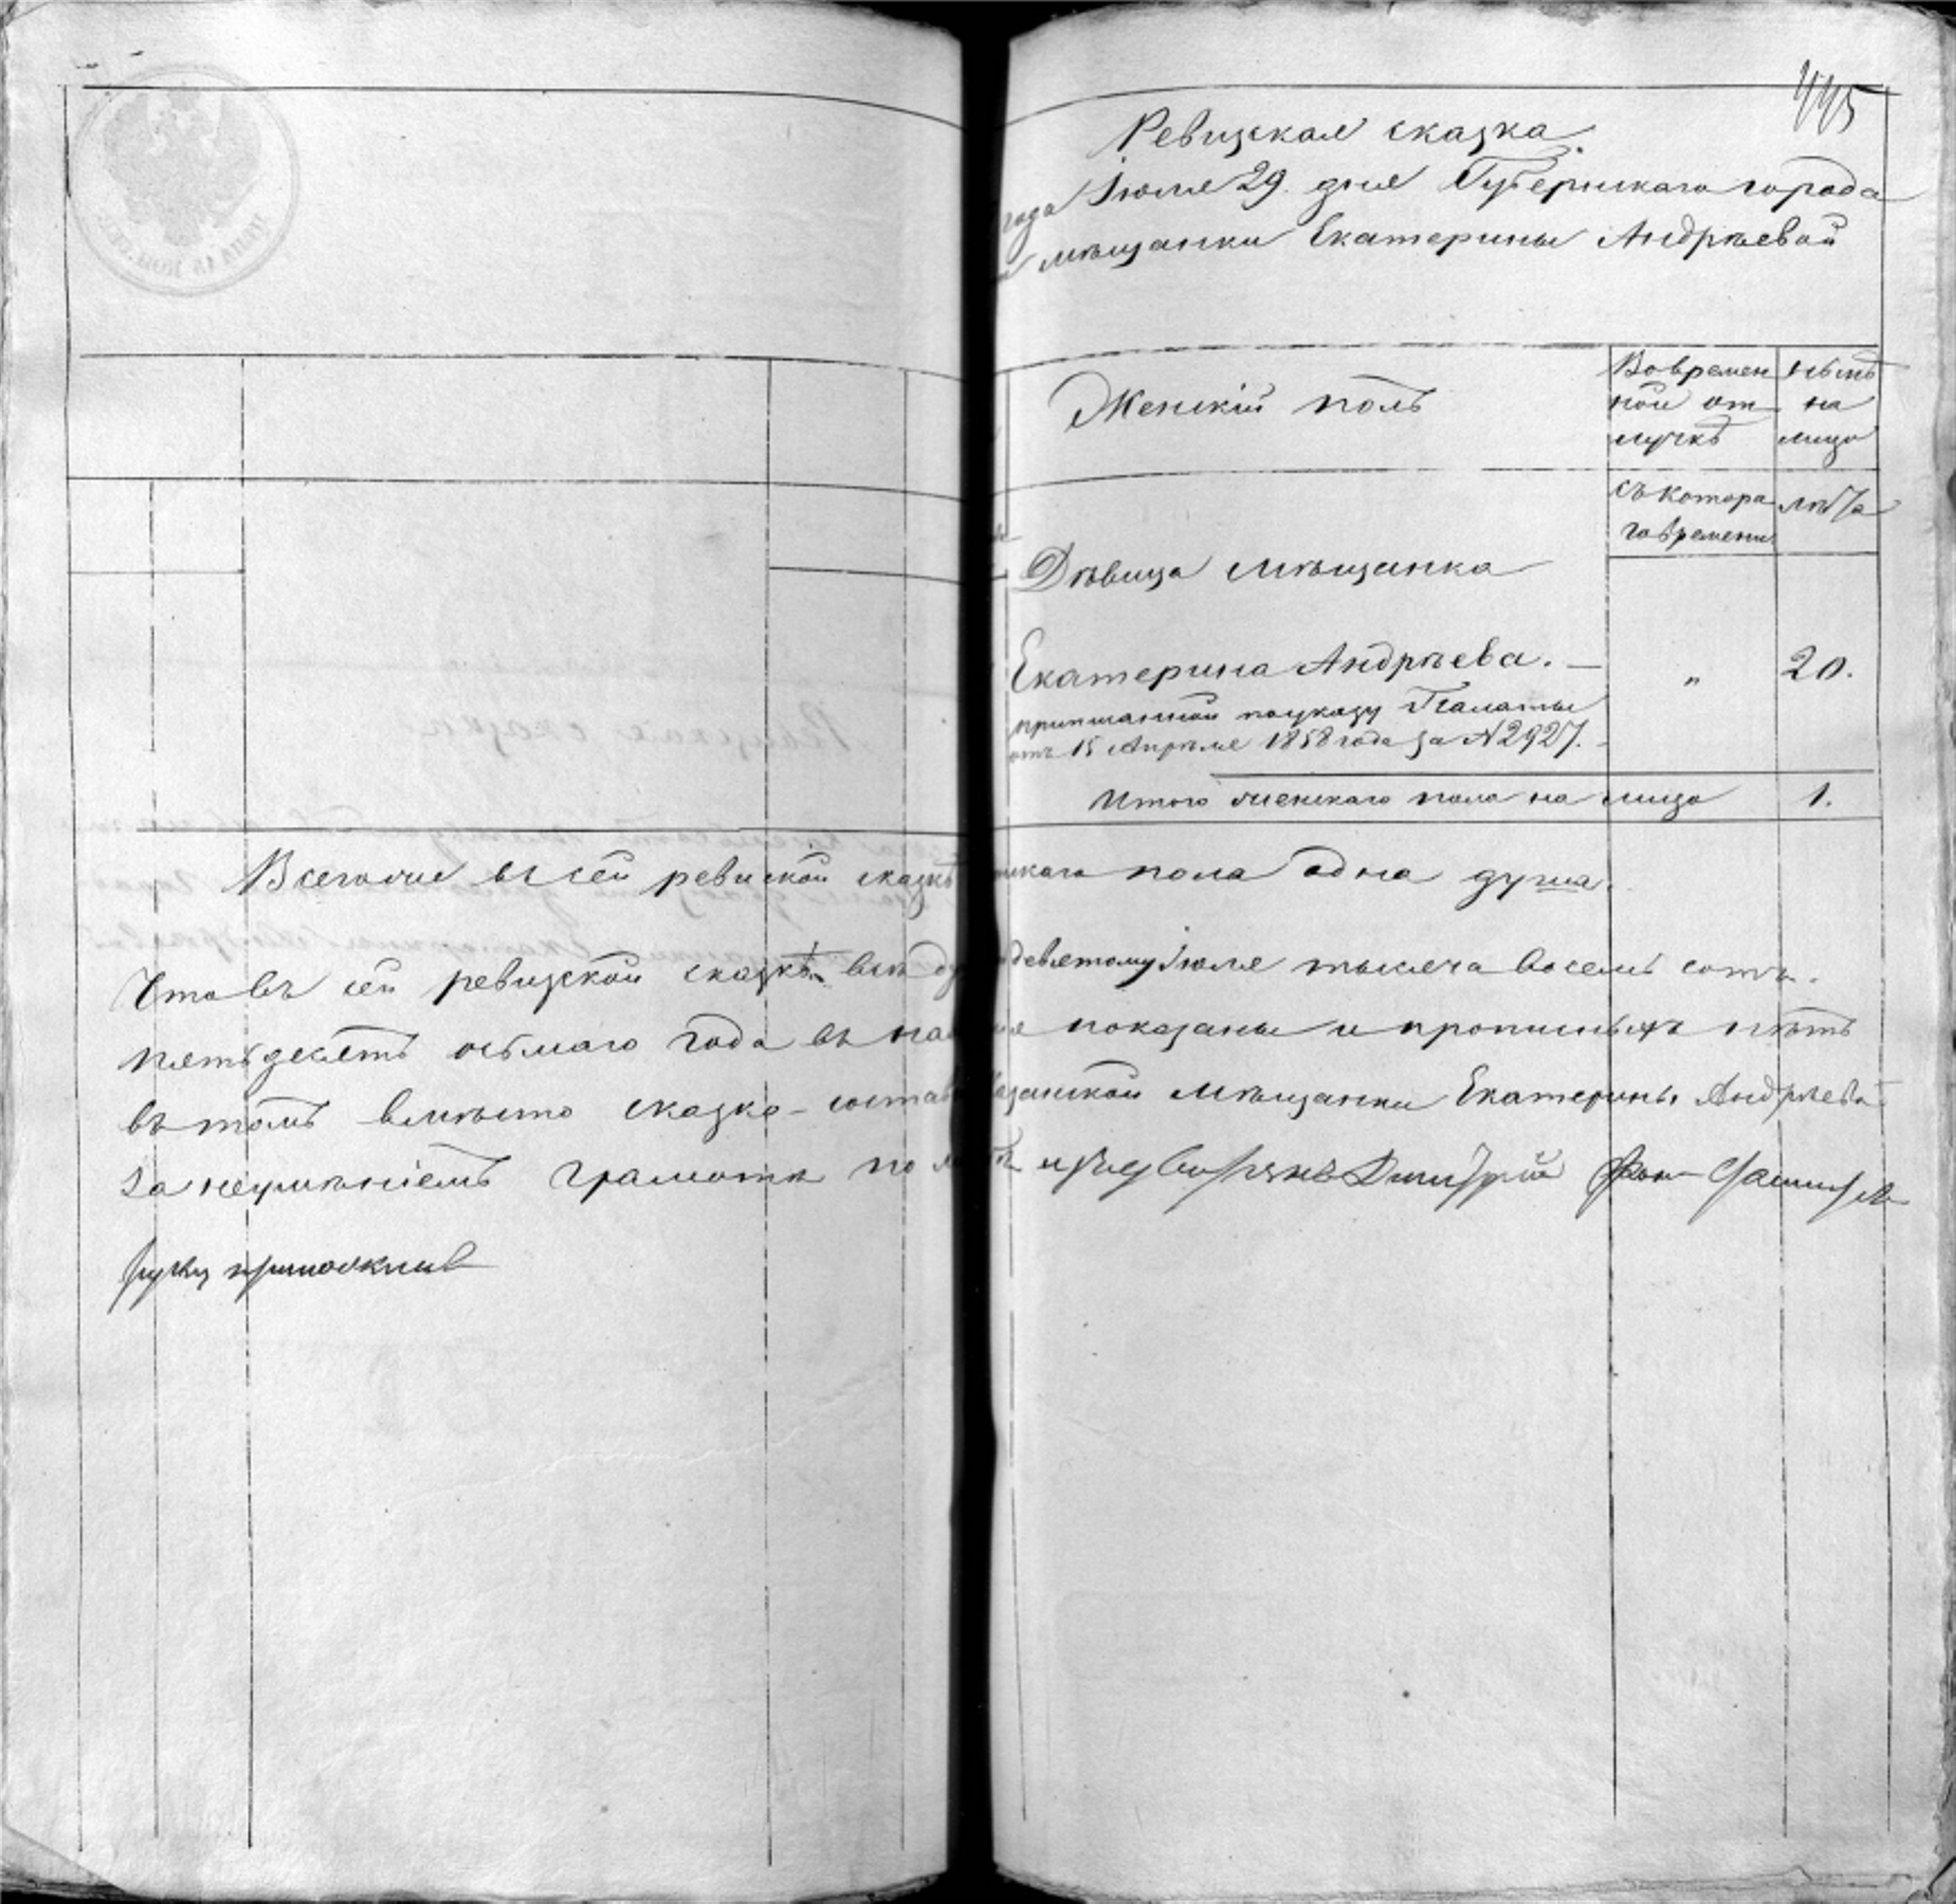 445
Ревизская сказка.
года Іюля 29 дня Губернскаго города
мѣщанки Екатерины Андрѣевой
Женскій полъ
Вовремен
ной от
лучкѣ
нынѣ
на
лицо
съ котора
го времени
лѣта
Дѣвица мѣщанка
Екатерина Андрѣева. — „ 20.
приписанной поуказу Палаты
отъ 15 Апрѣля 1858 года за № 2927.
Итого женскаго пола на лицо 1.
Всегоже въ сей ревиской сказкѣ нскаго пола одна душа.
Что въ сей ревизской сказкѣ всѣ ду девятому Іюля тысяча восемь сотъ
пятьдесятъ осьмаго года въ на показаны и прописныхъ нѣтъ
въ томъ вмѣсто сказко- состав азанской мѣщанки Екатерины Андрѣевой
за неумѣніемъ грамотѣ по Дмитрій фон
руку приложилъ